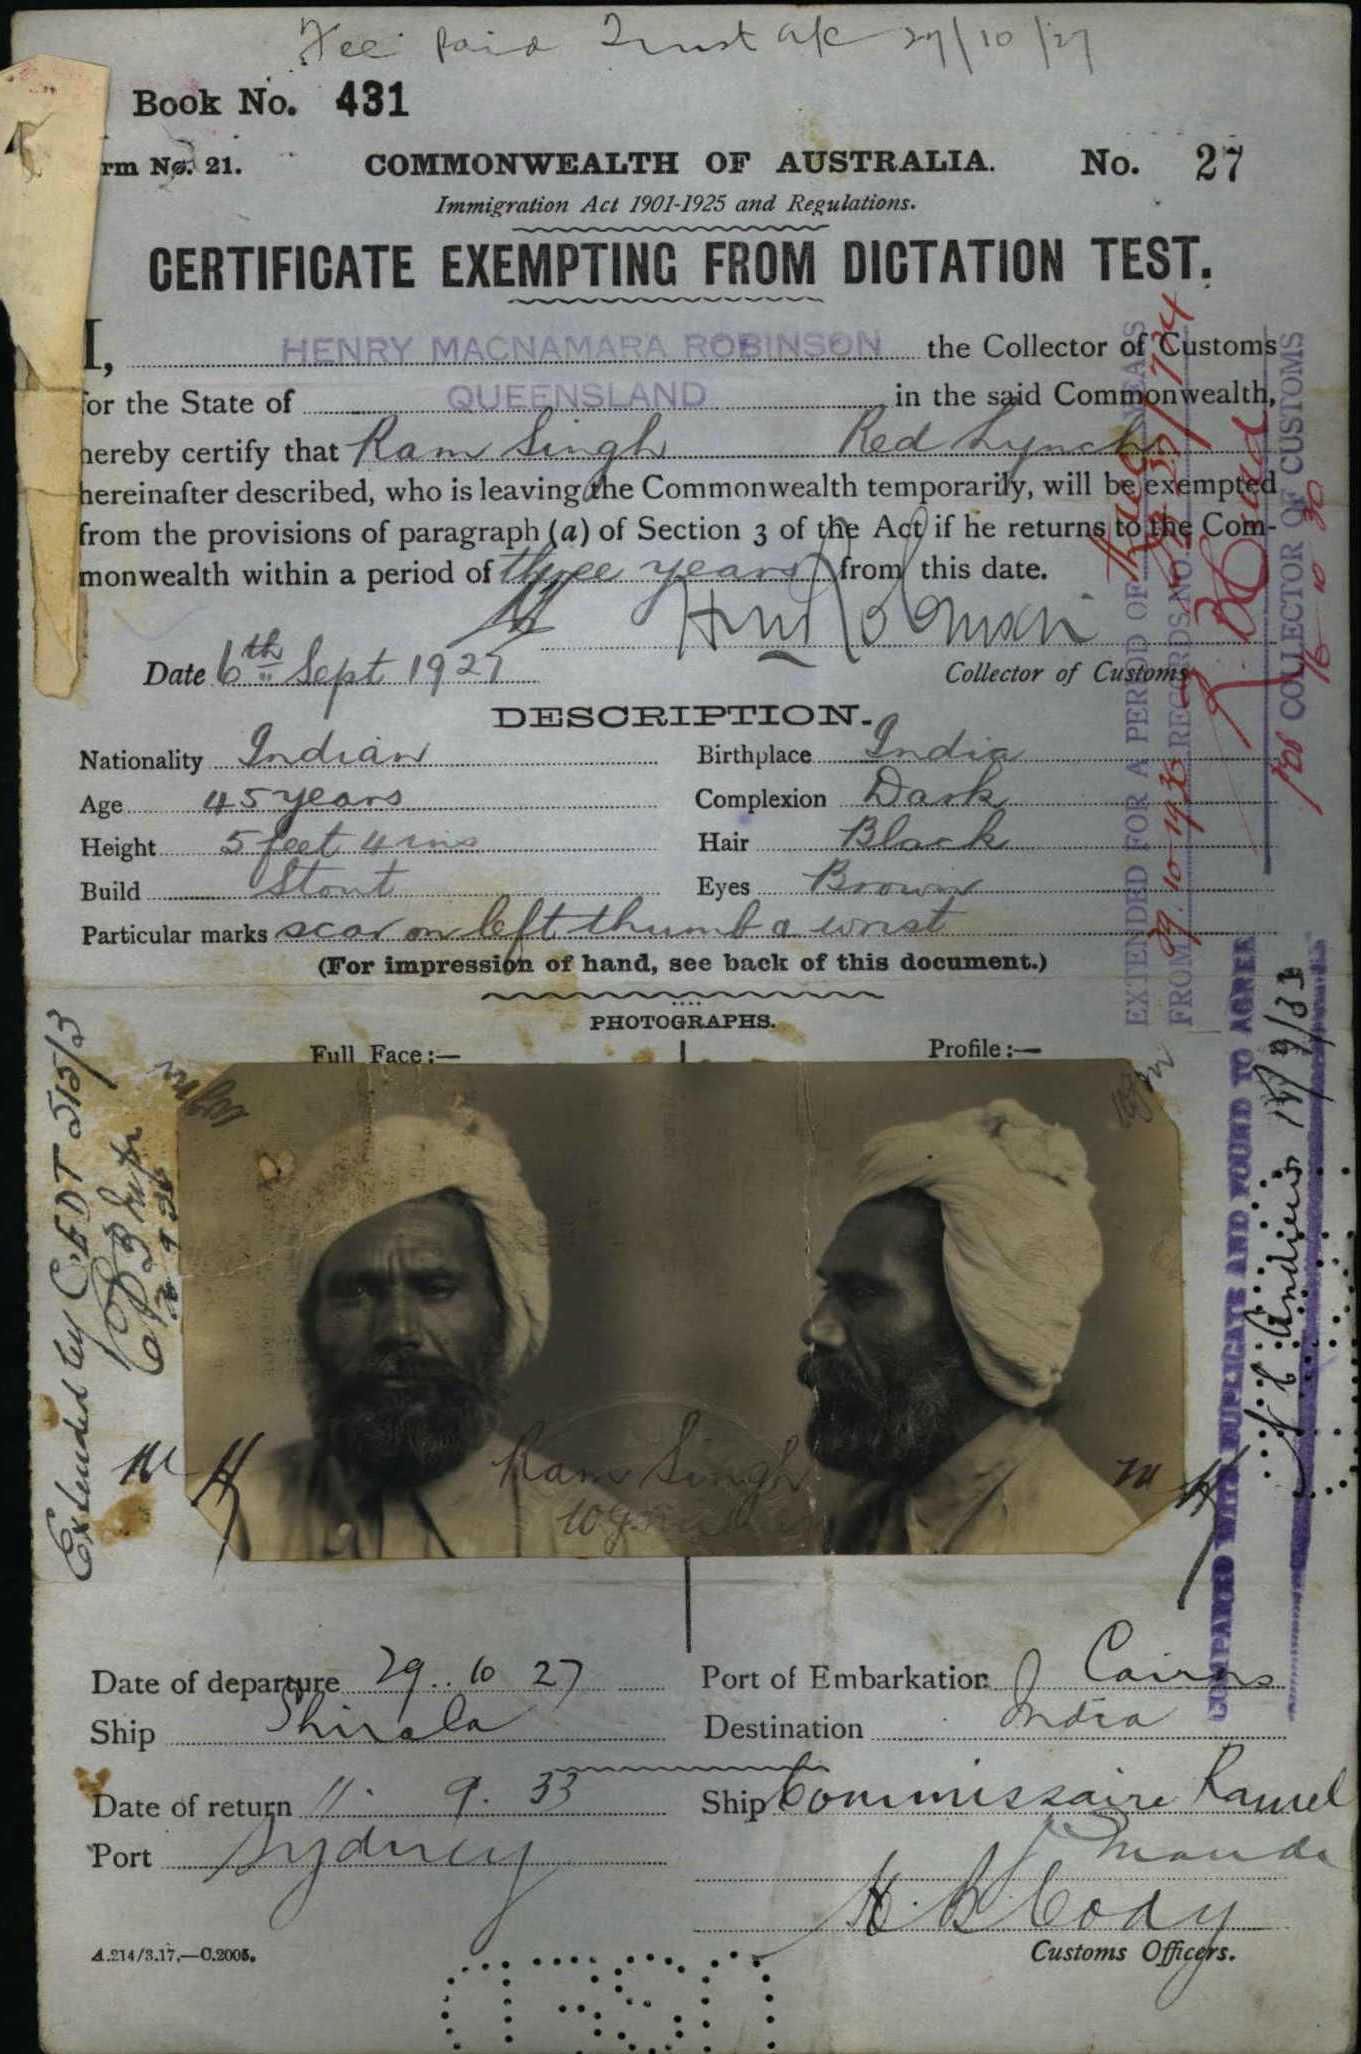 Fee paid Trust a/c 27/10/27
Book No. 431
rm No. 21. COMMONWEALTH OF AUSTRALIA. No. 27
Immigration Act 1901-1925 and Regulations.
CERTIFICATE EXEMPTING FROM DICTATION TEST.
I, HENRY MACNAMARA ROBINSON the Collector of Customs
for the State of QUEENSLAND in the said Commonwealth,
hereby certify that Ram Singh Red Lynch
hereinafter described, who is leaving the Commonwealth temporarily, will be exempted
from the provisions of paragraph (a) of Section 3 of the Act if he returns to the Com-
monwealth within a period of three years from this date.
Date 6th Sept 1927 Collector of Customs
DESCRIPTION.
Nationality Indian Birthplace India
Age 45 years Complexion Dark
Height 5 feet 4 ins Hair Black
Build Stout Eyes Brown
Particular marks scar on left thumb & wrist
(For impression of hand, see back of this document.)
PHOTOGRAPHS.
Full Face:— Profile:—
Ram Singh
Date of departure 29. 10 27 Port of Embarkation Cairns
Ship Shirala Destination India
Date of return 11. 9. 33 Ship Commissaire Ramel
Port Sydney
Customs Officers.
A.214/3.17.—C.2005.
Extended by CEDT 515/3
EXTENDED FOR A PERIOD OF three YEARS
FROM 29.10.1930 RECORDS NO.
COLLECTOR OF CUSTOMS
COMPARED WITH DUPLICATE AND FOUND TO AGREE